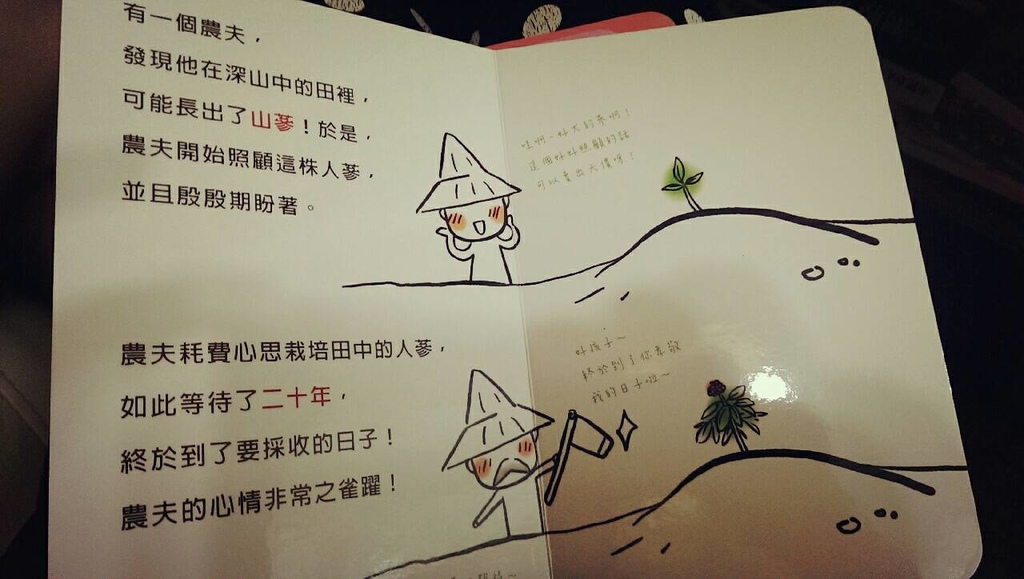 有一個農夫，
發現他在深山中的田裡，
可能長出了山蔘！於是，
農夫開始照顧這株人蔘，
並且殷殷期盼著。
哇啊，好大的蔘啊！
這個好好照顧的話
可以賣出大價呀！
農夫耗費心思栽培田中的人蔘，
如此等待了二十年，
終於到了要採收的日子！
農夫的心情非常之雀躍！
好孩子～
終於到了你孝敬
我的日子啦～